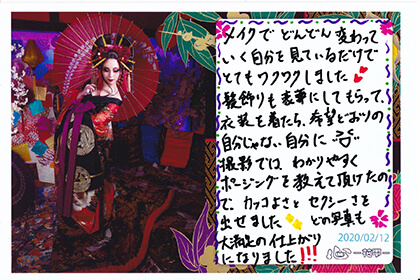 メイクで どんどん 変わって
いく自分を見ているだけで
とてもワクワクしました
髪飾りも豪華にしてもらって、
衣装を着たら、希望どおりの
自分じゃない自分に
撮影では、わかりやすく
ポージングを教えて頂けたの
で、カッコよさと セクシーさを
出せました どの写真も
大満足の仕上がり
になりました!!!
2020/02/12
心-花雫-